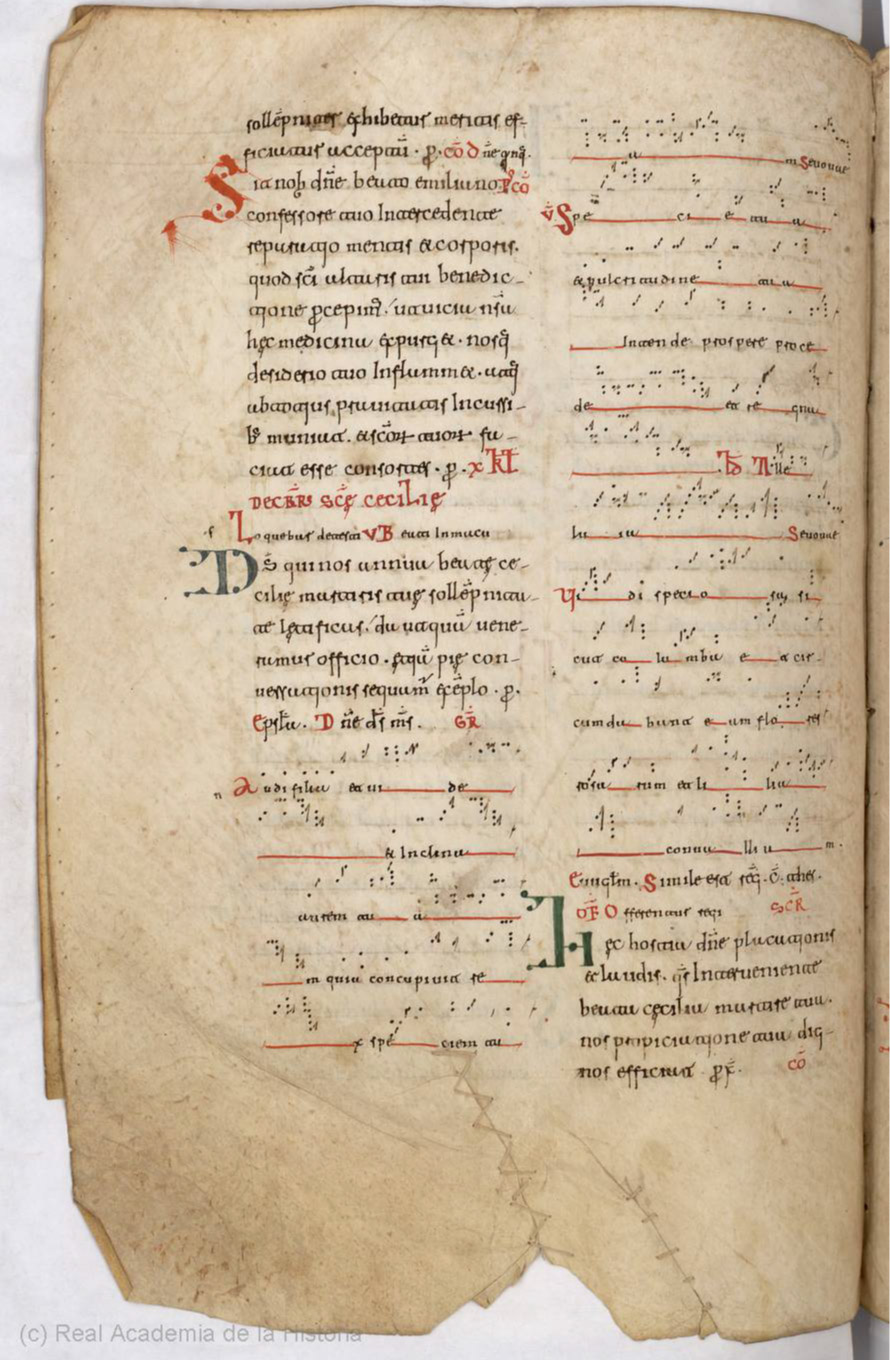 sollẽpnitas exhibeatur meritis ef-
ficiatur accepta. ꝓ. cõ Dñe qnq̃.
Sit nob dñe beato emiliano p̃cõ
confessore tuo Intercedente
reputatio mentis & corporis.
quod sc̃i altaris tui benedic-
tione ꝓcepim̃. ut uicia nr̃a
hęc medicina expurg&. nosq̃
desiderio tuo Inflamm&. utq̃
ab totius prauitatis Incursi-
b; muniat. & sc̃orum tuorum fa-
ciat esse consortes. ꝓ. x kl
DECBR̃S SCẽ CECILIę
Loquebar de testi VB eati Inmacu
Dš qui nos annua beatę ce-
cilię martiris tuę sollẽpnita-
te lętificas. da ut quã uene-
ramur officio. etiã pię con-
uersationis sequamur exẽplo. ꝓ.
Epsl̃a. Dñe dš mš. GR̃
Audi filia et ui de
& Inclina
aurem tu a
m quia concupiuit re
x spe ciem tu
a m Seuouae
V Spe ci e tu a
& pulcritudine tu a
Intende prospere proce
de et re gna
Alle
lu ia Seuouae
Vi di speciosam si
cut co lu mba a scen
cumda bant e um flo res
rosa rum et li lia
conua lli u m.
Euuglm. Simile est reg. c̃. thes.
OF Offerentur regi SCR̃
Hęc hostia dñe placationis
& laudis. q̃s Interueniente
beata cęcilia martire tua.
nos propiciatione tua dig-
nos efficiat. ꝓ. cõ
(c) Real Academia de la Historia